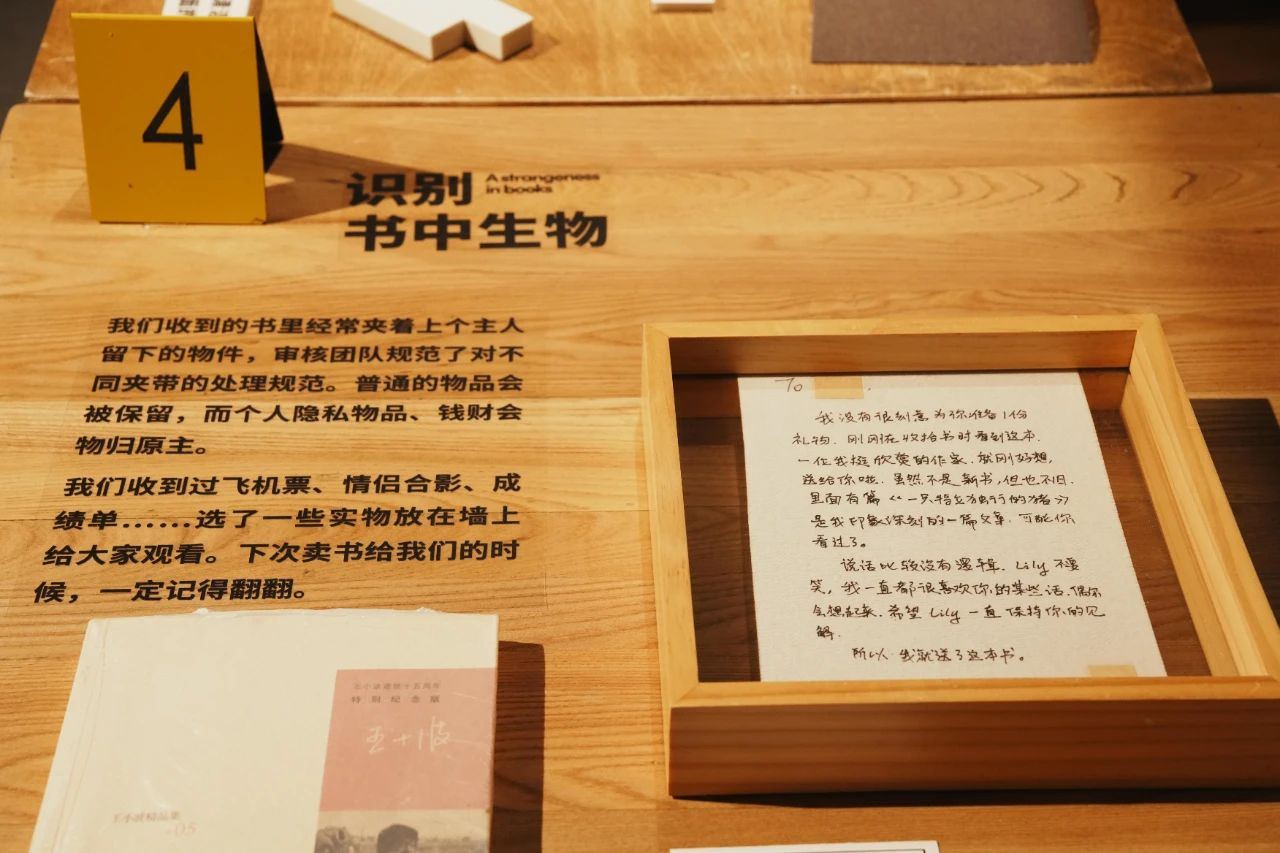 4
识别
书中生物
A strangeness
in books
我们收到的书里经常夹着上个主人
留下的物件，审核团队规范了对不
同夹带的处理规范。普通的物品会
被保留，而个人隐私物品、钱财会
物归原主。
我们收到过飞机票、情侣合影、成
绩单……选了一些实物放在墙上
给大家观看。下次卖书给我们的时
候，一定记得翻翻。
To
我没有很刻意为你准备1份
礼物. 刚刚在收拾书时看到这本.
一位我挺欣赏的作家. 就刚好想,
送给你啦. 虽然不是新书, 但也不旧.
里面有篇《一只特立独行的猪》
是我印象深刻的一篇文章. 可能你
看过了。
说话比较没有逻辑. Lily 不要
笑, 我一直都很喜欢你的某些话. 偶尔
会想起来. 希望 Lily 一直保持你的见
解.
所以 我就送了这本书。
王小波逝世十五周年
特别纪念版
王小波
王小波精品集
05